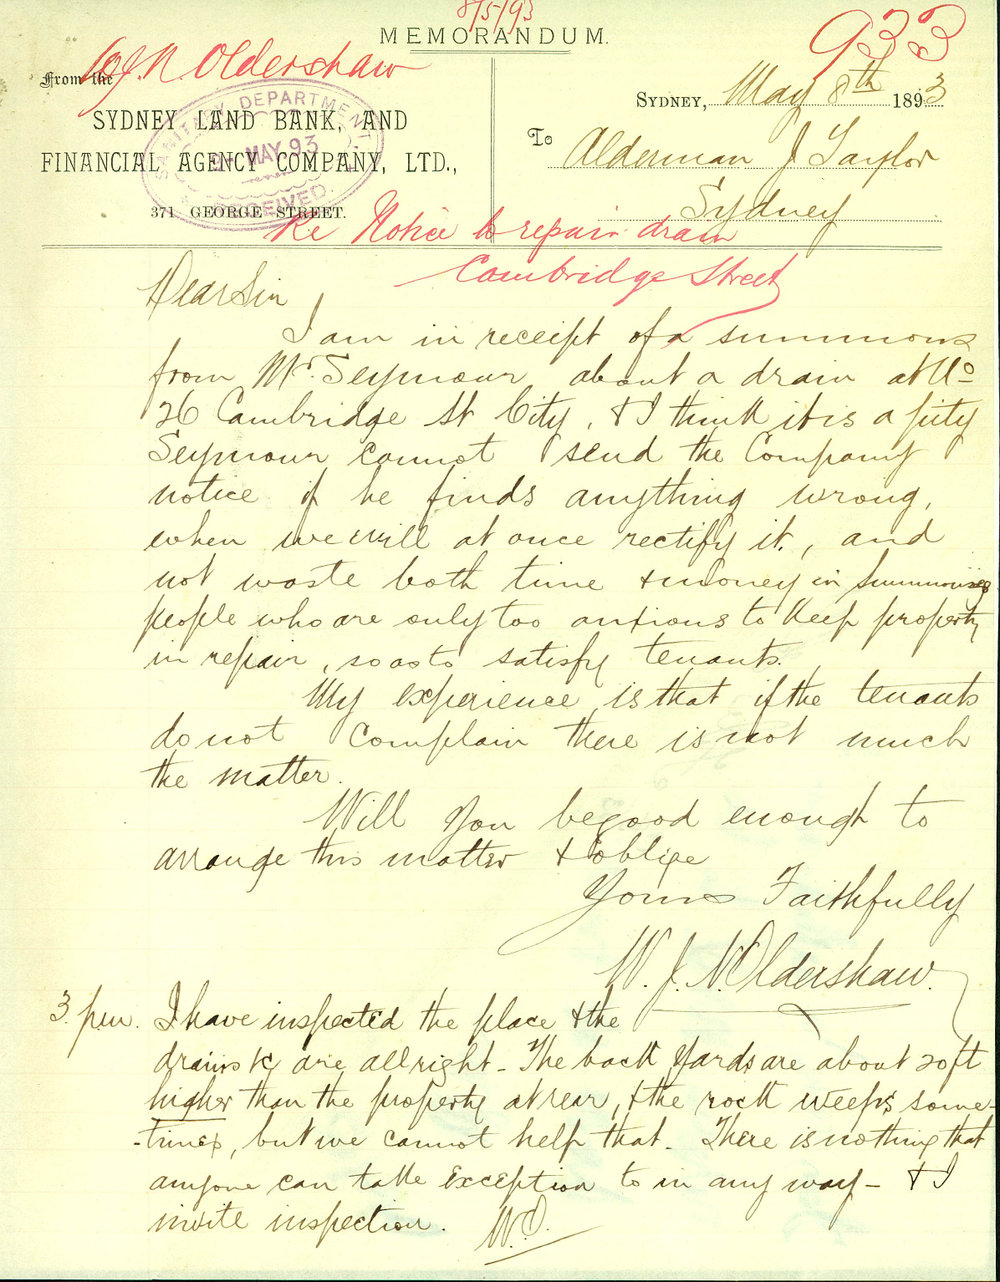 8/5/93
MEMORANDUM.
933
From the
W J N Oldershaw
SYDNEY LAND BANK, AND
FINANCIAL AGENCY COMPANY, LTD.,
371 GEORGE STREET.
SANITARY DEPARTMENT
9- MAY 93
RECEIVED.
SYDNEY, May 8th 1893
To Alderman J Taylor
Sydney
Re Notice to repair drain
Cambridge Street
Dear Sir
I am in receipt of a summons
from Mr. Seymour about a drain at No
26 Cambridge St City, & I think it is a pity
Seymour cannot send the Company
notice if he finds anything wrong,
when we will at once rectify it, and
not waste both time & money in summonsing
people who are only too anxious to keep property
in repair, so as to satisfy tenants.
My experience is that if the tenants
do not complain there is not much
the matter.
Will you be good enough to
arrange this matter & oblige
Yours Faithfully
W. J. N. Oldershaw.
3. pm. I have inspected the place & the
drains &c are all right - The back yards are about 20ft
higher than the property at rear, & the rock weeps some-
-times, but we cannot help that - There is nothing that
anyone can take exception to in any way - & I
invite inspection. W.O.